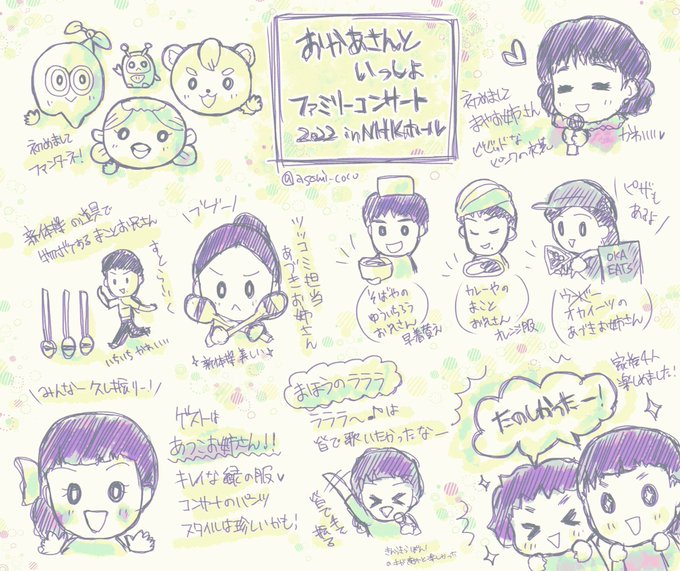 おかあさんと
いっしょ
ファミリーコンサート
2022 in NHKホール♥
@asomi-coco
初めまして
ファンターネ!
初めまして
まやお姉さん
ビビッドな
ピンクの衣装
かわいい♥
新体操の道具で
まことお兄さん
すとこここ
いちいちかわいい
ブブー!
ツッコミ担当
あづきお姉さん
新体操美しい
そばやの
ゆういちろう
お兄さん
早着替え
カレーやの
まこと
お兄さん
オレンジ服
ピザも
あるよ
OKA
EATS
ウーバー
オカイーツの
あづきお姉さん
みんなー久し振りー!
ゲストは
あつこお姉さん!!
キレイな緑の服♥
コンサートのパンツ
スタイルは珍しいかも!
まほうのラララ
ラララ〜♪は
皆で歌いたかったなー
家族4人
楽しめました!
たのしかったー!